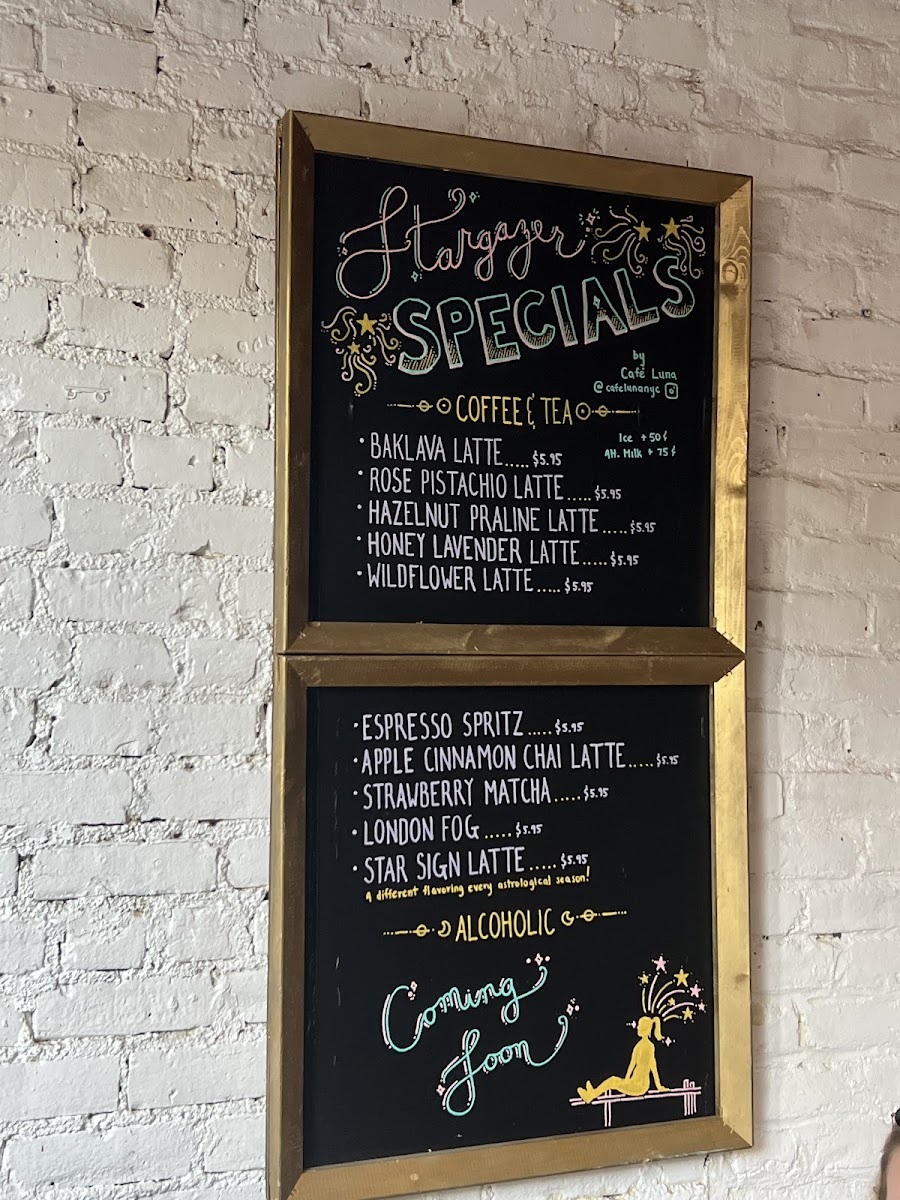 Stargazer
SPECIALS
by
Café Luna
@cafelunanyc
COFFEE & TEA
Ice +50¢
Alt. Milk +75¢
• BAKLAVA LATTE.....$5.95
• ROSE PISTACHIO LATTE.....$5.95
• HAZELNUT PRALINE LATTE.....$5.95
• HONEY LAVENDER LATTE.....$5.95
• WILDFLOWER LATTE.....$5.95
• ESPRESSO SPRITZ.....$5.95
• APPLE CINNAMON CHAI LATTE.....$5.95
• STRAWBERRY MATCHA.....$5.95
• LONDON FOG.....$5.95
• STAR SIGN LATTE.....$5.95
A different flavoring every astrological season!
ALCOHOLIC
Coming
Soon